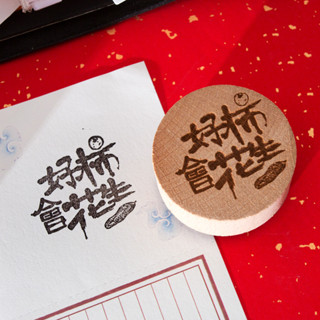 好柿
會花生
好柿
會花生